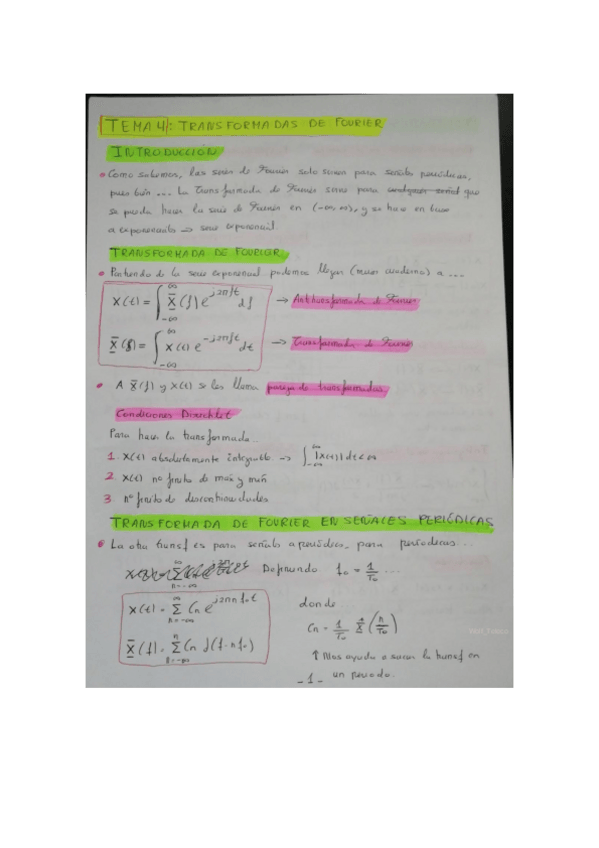 TEMA 4: TRANSFORMADAS DE FOURIER
INTRODUCCIÓN
• Como sabemos, las series de Fourier solo sirven para señales periódicas,
pues bien ... La Transformada de Fourier sirve para cualquier señal que
se pueda hacer la serie de Fourier en (-∞, ∞), y se hace en base
a exponenciales → serie exponencial.
TRANSFORMADA DE FOURIER
• Partiendo de la serie exponencial podemos llegar (mirar cuaderno) a ...
x(t) = ∫_{-∞}^{∞} X̄(f) e^{j2πft} df → Antitransformada de Fourier
X̄(f) = ∫_{-∞}^{∞} x(t) e^{-j2πft} dt → Transformada de Fourier
• A X̄(f) y x(t) se les llama pareja de transformadas.
Condiciones Dirichlet
Para hacer la transformada...
1. x(t) absolutamente integrable → ∫_{-∞}^{∞} |x(t)| dt < ∞
2. x(t) nº finito de máx y mín
3. nº finito de discontinuidades
TRANSFORMADA DE FOURIER EN SEÑALES PERIÓDICAS
• La otra transf es para señales aperiódicas, para periodicas...
Definiendo f₀ = 1/T₀ ...
x(t) = Σ_{n=-∞}^{∞} Cn e^{j2πnf₀t} donde
Cn = 1/T₀ X̄(n/T₀)
X̄(f) = Σ_{n=-∞}^{n} Cn δ(f-nf₀)
↑ Nos ayuda a sacar la transf en
un periodo.
- 1 -